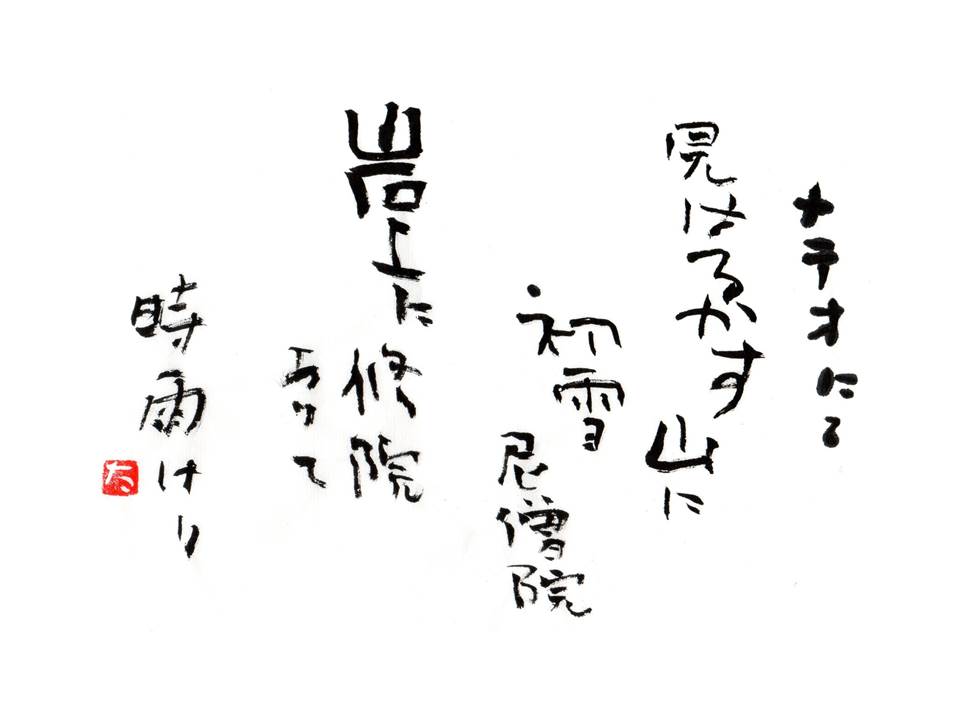 メテオにる
見はるかす山に
初雪尼僧院
岩上に修院
ありて
時雨けり